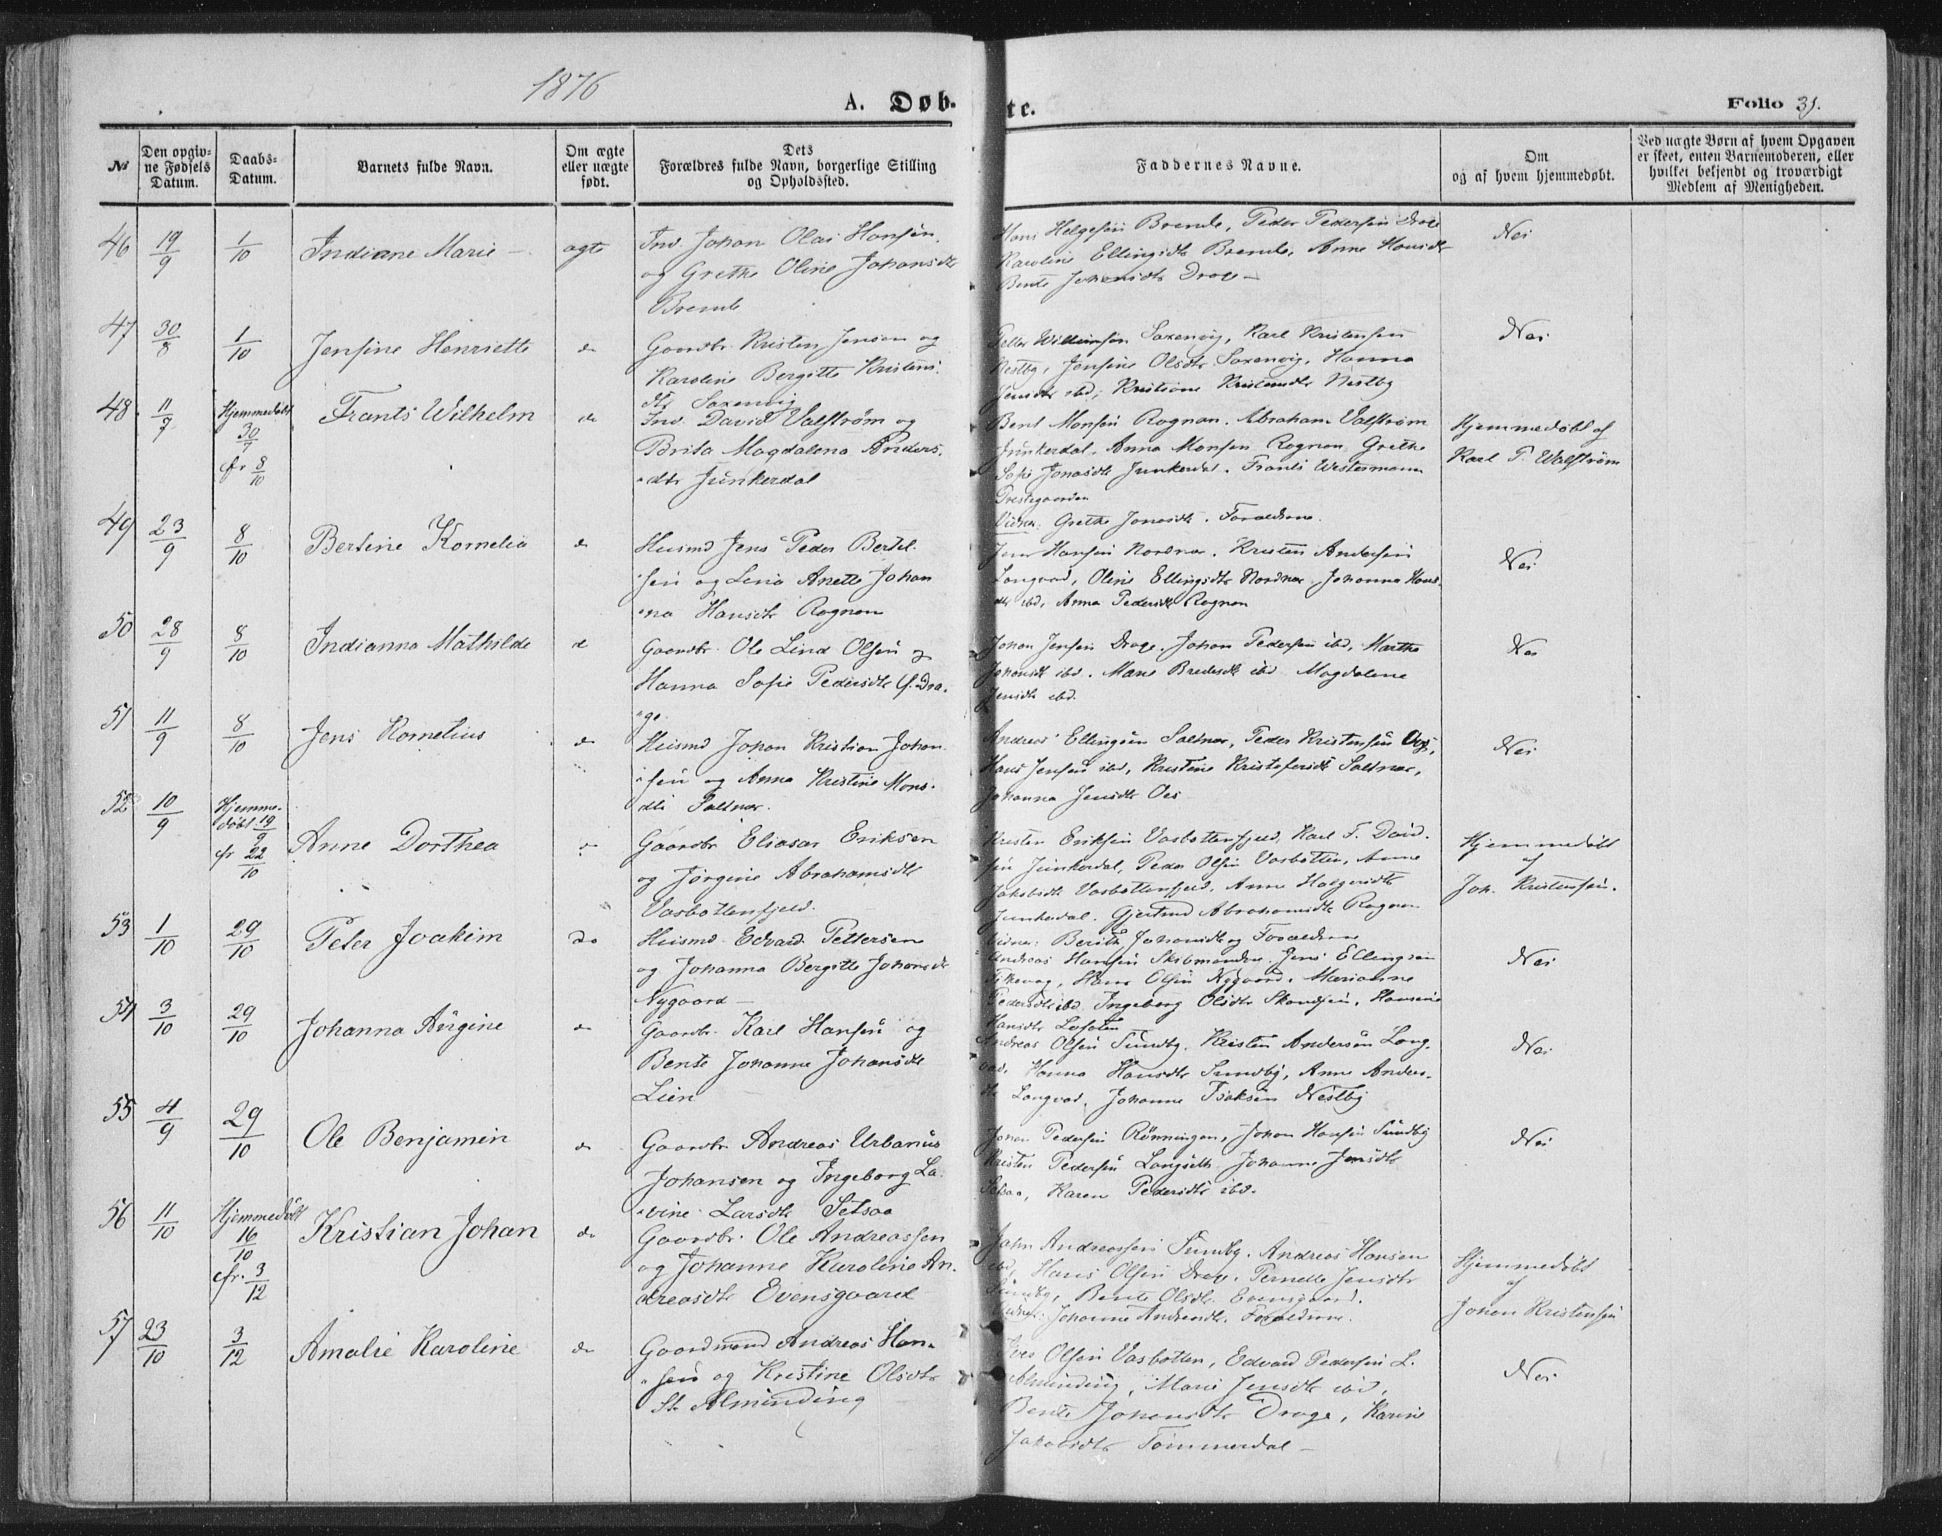 1876
A. Døb-
te.
Folio 31.
No
Den opgiv-
ne Fødsels
Datum.
Daabs-
Datum.
Barnets fulde Navn.
Om ægte
eller uægte
født.
Dets
Forældres fulde Navn, borgerlige Stilling
og Opholdssted.
Faddernes Navne.
Om
og af hvem hjemmedøbt.
Ved uægte Børn af hvem Opgaven
er skeet, enten Barnemoderen, eller
hvilket bekjendt og troværdigt
Medlem af Menigheden.
46
19/9
1/10
Indiane Marie -
ægte
Ind. Johan Olai Hansen
og Grethe Oline Johansdtr
Bremle
Hans Helgesen Bremle, Peder Pedersen Drage
Karoline Ellingsdtr Bremle, Anne Hansdtr
Bente Johansdtr Drage -
Nei
47
30/8
1/10
Jensine Henriette
do
Gaardbr. Kristen Jensen og
Karoline Bergitte Kristens-
dtr Saxenvig
Petter Willumsen Saxenvig, Karl Kristensen
Nestby, Jensine Olsdtr Saxenvig, Hanna
Jensdtr ibd, Kristiane Kristensdtr Nestby
Nei
48
11/7
Hjemmedøbt
30/7
cfr 8/10
Frants Wilhelm
do
Ind. David Valstrøm og
Brita Magdalena Anders-
dtr Junkerdal
Bent Monsen Rognan. Abraham Valstrøm
Junkerdal. Anna Monsen Rognan, Grethe
Sofie Jonasdtr Junkerdal. Frants Westermann
Prestegaarden
Vidner: Grethe Jonasdtr. Forældrene.
Hjemmedøbt af
Karl P. Walstrøm
49
23/9
8/10
Bertine Kornelia
do
Huusmd Jens Peder Bertel-
sen og Lena Anette Johan
na Hansdtr Rognan
Jens Hansen Nordnæs. Kristen Andersen
Langvad, Oline Ellingsdtr Nordnæs. Johanna Hans-
dtr ibd, Anna Pedersdtr Rognan
Nei
50
28/9
8/10
Indianna Mathilde
d
Gaardbr. Ole Lind Olsen og
Hanna Sofie Pedersdtr Dra-
ge.
Johan Jensen Drage. Johan Pedersen ibd, Marthe
Johansdtr ibd. Maren Bredesdtr ibd Magdalene
Jensdtr ibd.
Nei
51
11/9
8/10
Jens Kornelius
do
Huusmd Johan Kristian Johan
sen og Anna Kristine Mons-
dtr Saltnæs.
Andreas Ellingsen Saltnæs, Peder Kristensen
Hans Jensen ibd, Kristine Kristofersdtr Saltnæs,
Johanna Jensdtr Oes
Nei
52
10/9
Hjemme-
døbt 19/9
cfr 22/10
Anne Dorthea
do
Gaardbr Eliasar Eriksen
og Jørgine Abrahamsdtr
Vasbottenfjeld.
Kristen Eriksen Vasbottenfjeld, Karl F. David-
sen Junkerdal, Peder Olsen Vasbotten, Anne
Jakobsdtr Vasbottenfjeld. Anne Holgersdtr
Junkerdal. Gjertrud Abrahamsdtr Rognan
Vidner: Berith Johansdtr og Forældrene
Hjemmedøbt
af
Joh. Kristensen.
53
1/10
29/10
Peter Joakim
do
Huismd Edvard Pettersen
og Johanna Bergitte Johansdtr
Nygaard -
Andreas Hansen Skibmandn. Jens Ellingsen
Fiskevaag, Hans Olsen Nygaard. Marianne
Pedersdtr ibd Ingeborg Olsdtr Skansen. Hansine
Hansdtr Lofoten
Nei
54
3/10
29/10
Johanna Augine
do
Gaardbr. Karl Hansen og
Bente Johanne Johansdtr
Lien
Andreas Olsen Sundby. Kristen Andersen Lang-
vad. Hanna Hansdtr Sundby, Anne Anders-
dtr Langvad. Johanne Isaksen Nestby
Nei
55
4/9
29/10
Ole Benjamin
do
Gaardbr. Andreas Urbanus
Johansen og Ingeborg La-
vine Larsdtr Setsaa
Johan Pedersen Rønningen, Johan Hansen Sundby
Kristen Pedersen Langseth. Johanne Jensdtr
Setsaa, Karen Pedersdtr ibd.
Nei
56
11/10
Hjemmedøbt
16/10
cfr. 3/12
Kristian Johan
do
Gaardbr. Ole Andreassen
og Johanne Karoline An-
dreasdtr Evensgaard
John Andreassen Sundby. Andreas Hansen
ibd, Hans Olsen Drage. Pernelle Jensdtr
Sundby, Bente Olsdtr Evensgaard.
Vidner: Johanne Andreasdtr. Forældrene.
Hjemmedøbt
af
Johan Kristensen
57
23/10
3/12
Amalie Karoline
do
Gaardmand Andreas Han-
sen og Kristine Olsdtr
St. Alminding
Olsen Vasbotten, Edvard Pedersen L.
Alminding, Marie Jensdtr ibd,
Bente Johansdtr Drage, Karine
Jakobsdtr Tømmerdal -
Nei